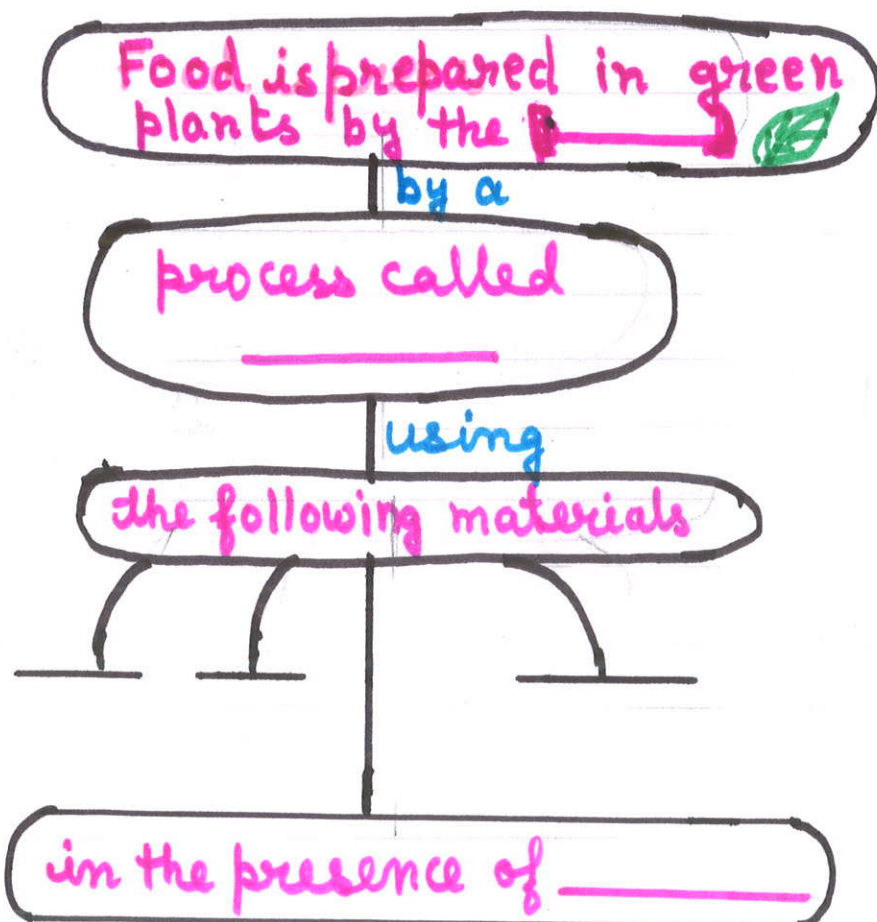 Food is prepared in green
plants by the
by a
process called
using
the following materials
in the presence of